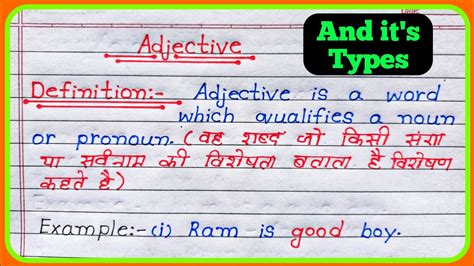 And it's
Types
Adjective
Definition:- Adjective is a word
which qualifies a noun
or pronoun. (वह शब्द जो किसी संज्ञा
या सर्वनाम की विशेषता बताता है विशेषण
कहते है)
Example:-(i) Ram is good boy.